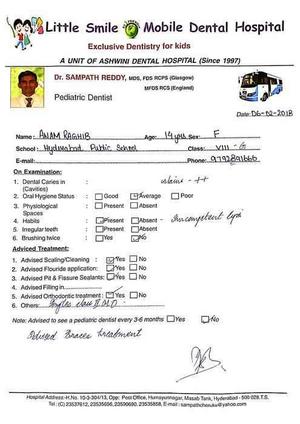 Little Smile Mobile Dental Hospital
Exclusive Dentistry for kids
A UNIT OF ASHWINI DENTAL HOSPITAL (Since 1997)
Dr. SAMPATH REDDY, MDS, FDS RCPS (Glasgow)
MFDS RCS (England)
Pediatric Dentist
Date: 06-02-2018
Name: ANAM RAGHIB Age: 14 yrs Sex: F
School: Hyderabad Public School Class: VIII - G
E-mail: Phone: 9792891666
On Examination:
1. Dental Caries in (Cavities) stains - ++
2. Oral Hygiene Status : Good Average Poor
3. Physiological Spaces : Present Absent
4. Habits : Present Absent - Incompetent lips
5. Irregular teeth : Present Absent
6. Brushing twice : Yes No
Adviced Treatment:
1. Advised Scaling/Cleaning : Yes No
2. Advised Flouride application: Yes No
3. Advised Pit & Fissure Sealants: Yes No
4. Advised Filling in
5. Advised Orthodontic treatment : Yes No
6. Others: Angles class II
Note: Advised to see a pediatric dentist every 3-6 months Yes No
Advised Braces treatment
Hospital Address-H.No. 10-3-304/13, Opp: Post Office, Humayunnagar, Masab Tank, Hyderabad - 500 028.T.S.
Tel: (C) 23537612, 23535656, 23590690, 23535858, E-mail :